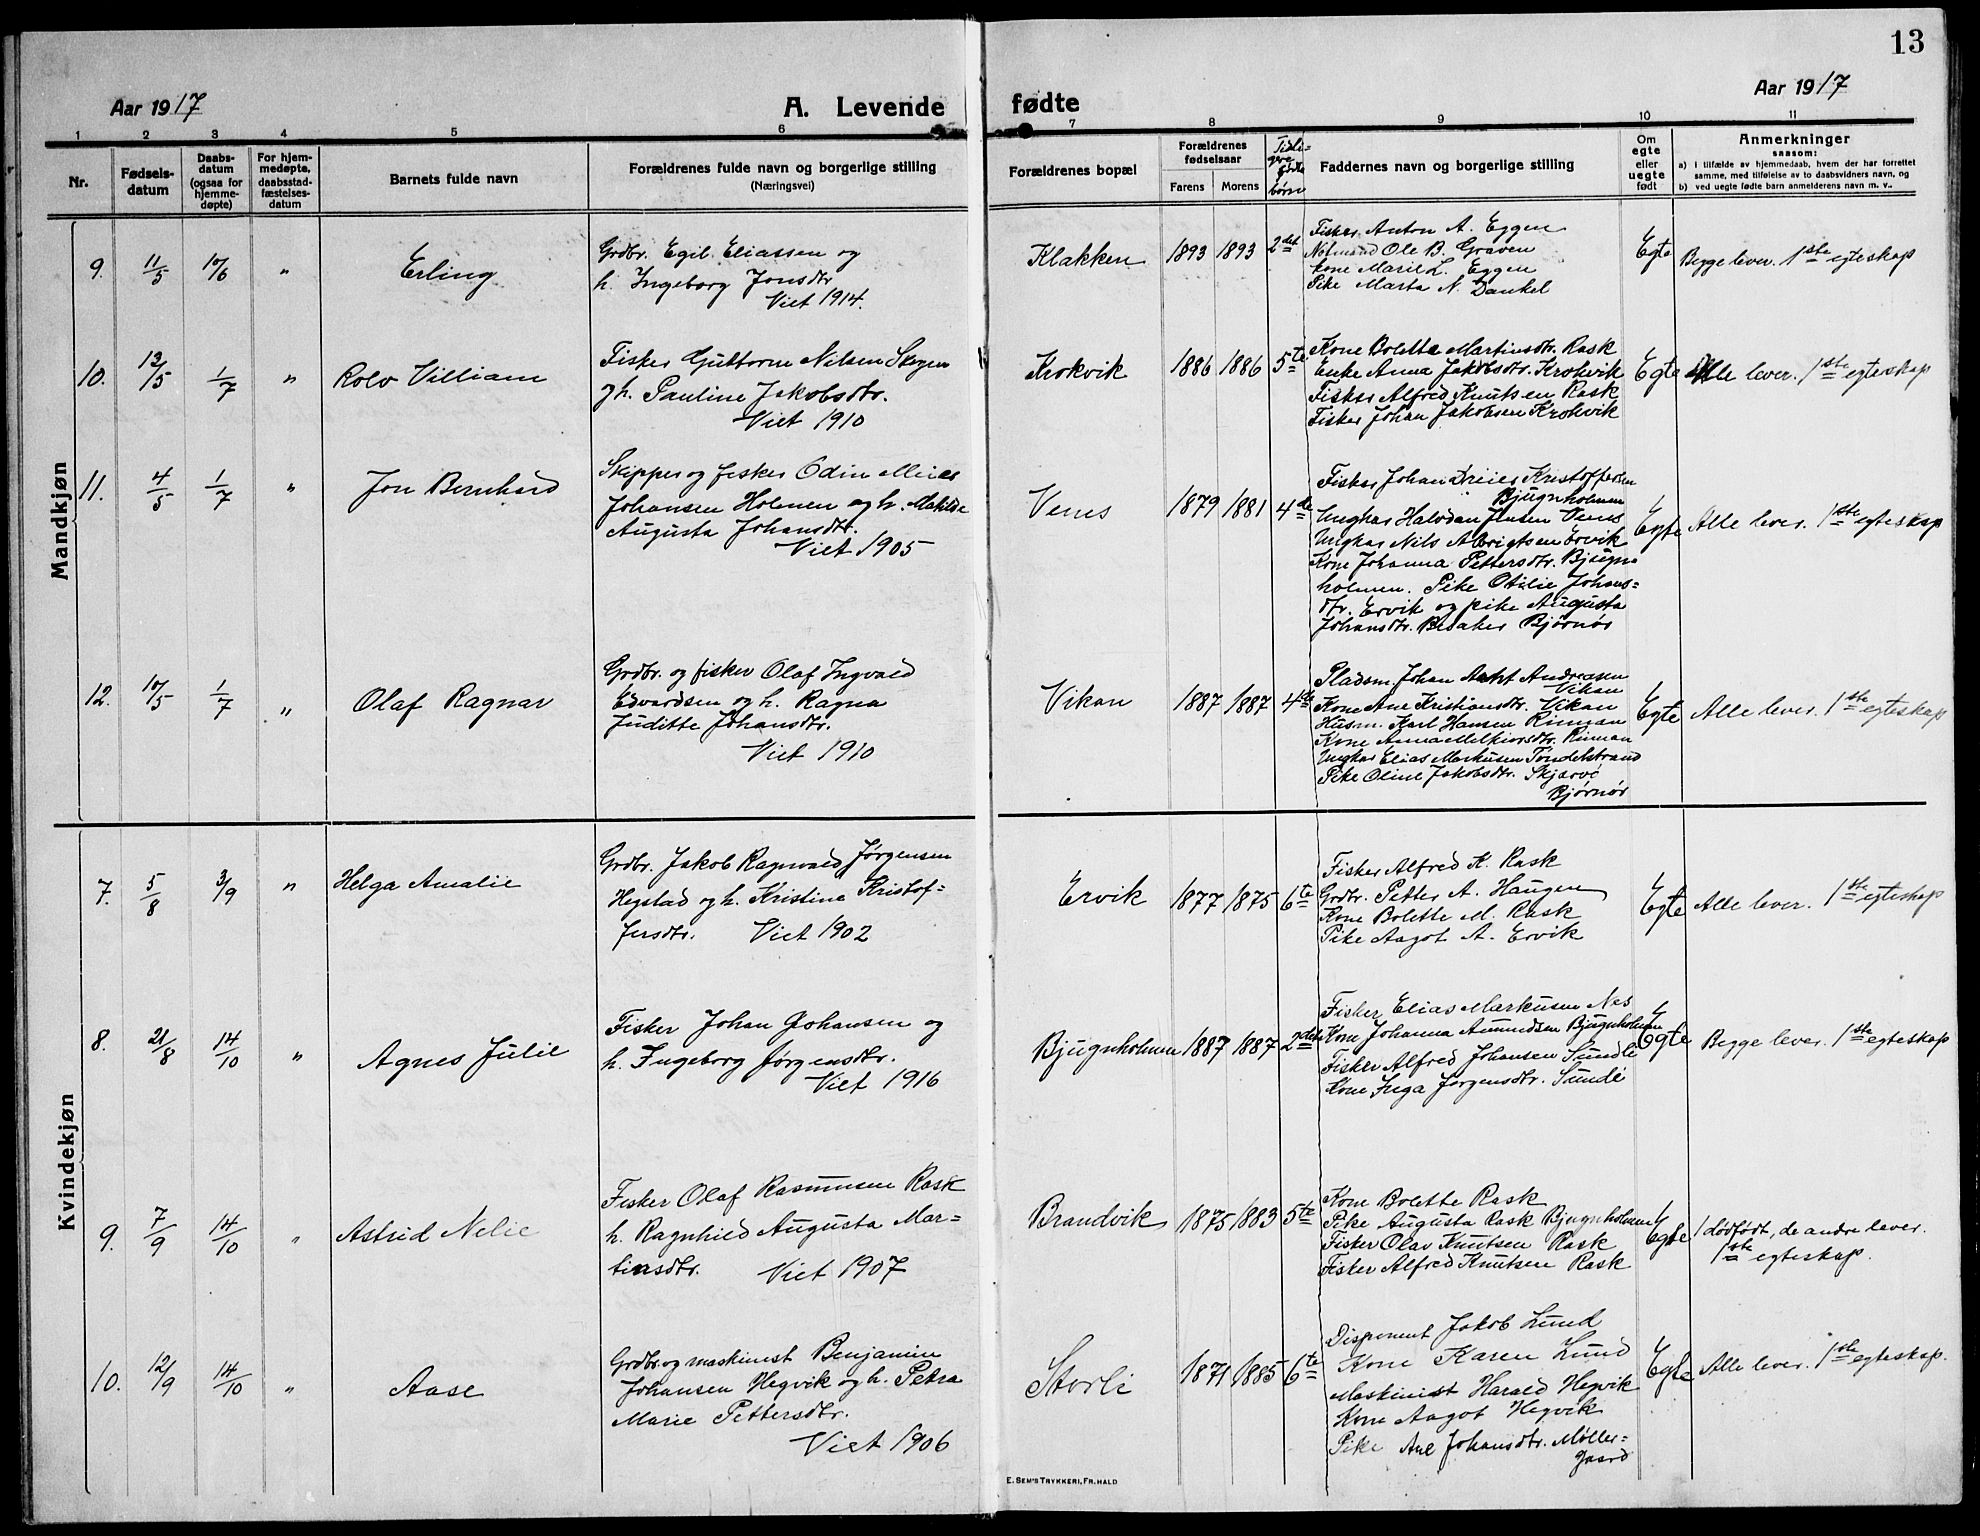 13
Aar 1917
A. Levende fødte
Aar 1917
1 2 3 4 5 6 7 8 9 10 11
Nr.
Fødsels-
datum
Daabs-
datum
(ogsaa for
hjemme-
døpte)
For hjem-
medøpte,
daabsstad-
fæstelses-
datum
Barnets fulde navn
Forældrenes fulde navn og borgerlige stilling
(Næringsvei)
Forældrenes bopæl
Forældrenes
fødselsaar
Farens Morens
Tidli-
gere
fødte
børn
Faddernes navn og borgerlige stilling
Om
egte
eller
uegte
født
Anmerkninger
saasom:
a) i tilfælde av hjemmedaab, hvem der har forrettet
samme, med tilføielse av to daabsvidners navn, og
b) ved uegte fødte barn anmelderens navn m. v..
Mandkjøn
9. 11/5 10/6 " Erling
Grdbr. Egil Eliassen og
h. Ingeborg Jonsdtr.
Viet 1914.
Klakken 1893 1893 2det
Fisker Anton A. Eggen
Notmand Ole B. Graven
Kone Marie L. Eggen
Pike Marta N. Dankel
Egte Begge lever. 1ste egteskap
10. 12/5 1/7 " Rolv Villiam
Fisker Guttorm Nilsen Skogen
og h. Pauline Jakobsdtr.
Viet 1910
Krokvik 1886 1886 5te
Kone Bolette Martinsdtr. Rask
Enke Anna Jakobsdtr. Krokvik
Fisker Alfred Knutsen Rask
Fisker Johan Jakobsen Krokvik
Egte Alle lever. 1ste egteskap
11. 4/5 1/7 " Jon Bernhard
Skipper og fisker Odin Meier
Johansen Holmen og h. Matilde
Augusta Johansdtr.
Viet 1905
Venes 1879 1881 4de
Fisker Johan Dreier Kristoffersen
Bjugnholmen
Ungkar Halvdan Jensen Venes
Ungkar Nils Albrigtsen Ervik
Kone Johanna Pettersdtr. Bjugn-
holmen. Pike Otilie Johans=
dtr. Ervik og pike Augusta
Johansdtr. Besaker Bjørnør
Egte Alle lever. 1ste egteskap
12. 10/5 1/7 " Olaf Ragnar
Grdbr. og fisker Olaf Ingvald
Edvardsen og h. Ragna
Juditte Johansdtr.
Viet 1910
Vikan 1887 1887 4de
Pladsm. Johan Andreasen
Vikan
Kone Ane Kristiansdtr. Vikan
Husm. Karl Hansen Rinnan
Kone Anna Melkiorsdtr. Rinnan
Ungkar Elias Markusen Tøndelstrand
Pike Oline Jakobsdtr. Skjærvø
Bjørnør
Egte Alle lever. 1ste egteskap
Kvindekjøn
7. 5/8 3/9 " Helga Amalie
Grdbr. Jakob Ragnvald Jørgensen
Hegstad og h. Kristine Kristof=
fersdtr. Viet 1902
Ervik 1877 1875 6te
Fisker Alfred K. Rask
Grdbr. Petter A. Haugen
Kone Bolette M. Rask
Pike Aagot A. Ervik
Egte Alle lever. 1ste egteskap
8. 21/8 14/10 " Agnes Julie
Fisker Johan Johansen og
h. Ingeborg Jørgensdtr.
Viet 1916
Bjugnholmen 1887 1887 2det
Fisker Elias Markusen Nes
Kone Johanna Aamundsen Bjugnholmen
Fisker Alfred Johansen Sundli
Kone Inga Jørgensdtr. Sunde
Egte Begge lever. 1ste egteskap
9. 7/9 14/10 " Astrid Nelie
Fisker Olaf Rasmusen Rask
h. Ragnhild Augusta Mar=
tinsdtr. Viet 1907
Brandvik 1875 1883 5te
Kone Bolette Rask
Pike Augusta Rask Bjugnholmen
Fisker Olav Knutsen Rask
Fisker Alfred Knutsen Rask
Egte 1 dødfødt, de andre lever.
1ste egteskap.
10. 12/9 14/10 " Aase
Grdbr. og maskinist Benjamin
Johansen Hegvik og h. Petra
Marie Pettersdtr.
Viet 1906
Storli 1871 1885 6te
Disponent Jakob Lund
Kone Karen Lund
Maskinist Harald Hegvik
Kone Aagot Hegvik
Pike Ane Johansdtr. Møller=
gaard
Egte Alle lever. 1ste egteskap.
E. SEM'S TRYKKERI, FR.HALD